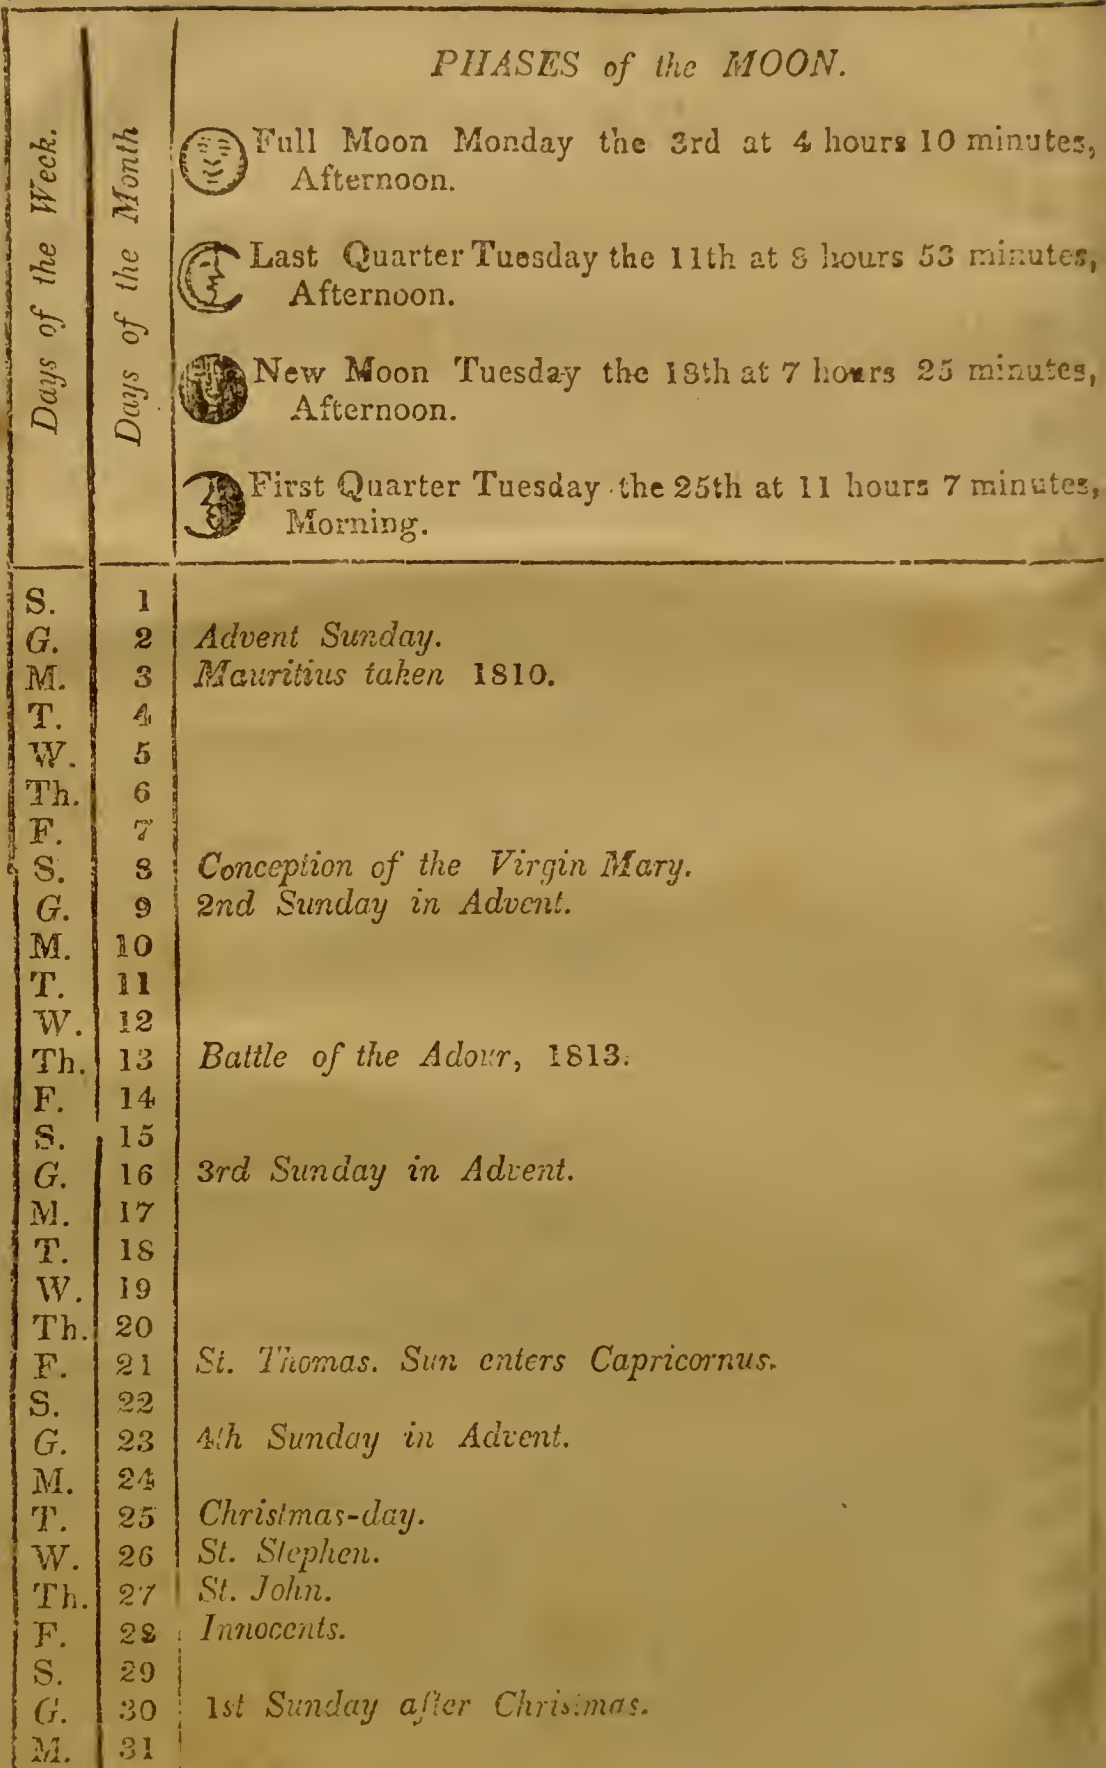 PHASES of the MOON.
Days of the Week.
Days of the Month
Full Moon Monday the 3rd at 4 hours 10 minutes,
Afternoon.
Last Quarter Tuesday the 11th at 8 hours 53 minutes,
Afternoon.
New Moon Tuesday the 18th at 7 hours 25 minutes,
Afternoon.
First Quarter Tuesday the 25th at 11 hours 7 minutes,
Morning.
S. 1
G. 2 Advent Sunday.
M. 3 Mauritius taken 1810.
T. 4
W. 5
Th. 6
F. 7
S. 8 Conception of the Virgin Mary.
G. 9 2nd Sunday in Advent.
M. 10
T. 11
W. 12
Th. 13 Battle of the Adour, 1813.
F. 14
S. 15
G. 16 3rd Sunday in Advent.
M. 17
T. 18
W. 19
Th. 20
F. 21 St. Thomas. Sun enters Capricornus.
S. 22
G. 23 4th Sunday in Advent.
M. 24
T. 25 Christmas-day.
W. 26 St. Stephen.
Th. 27 St. John.
F. 28 Innocents.
S. 29
G. 30 1st Sunday after Christmas.
M. 31